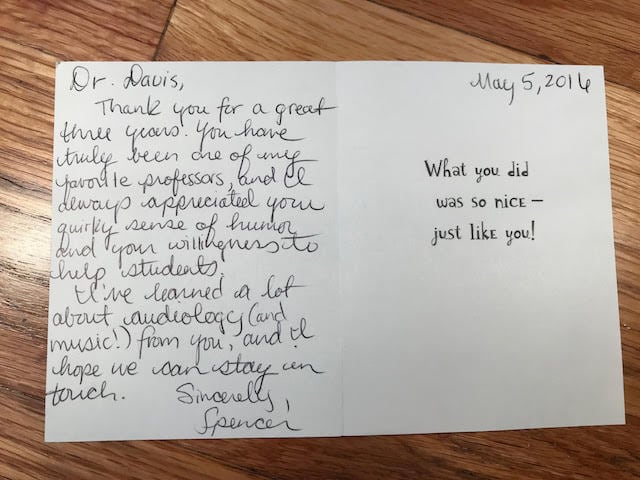 Dr. Davis,
Thank you for a great
three years. You have
truly been one of my
favorite professors, and I
always appreciated your
quirky sense of humor
and your willingness to
help students.
I've learned a lot
about audiology (and
music!) from you, and I
hope we can stay in
touch.
Sincerely,
Spencer
May 5, 2016
What you did
was so nice —
just like you!